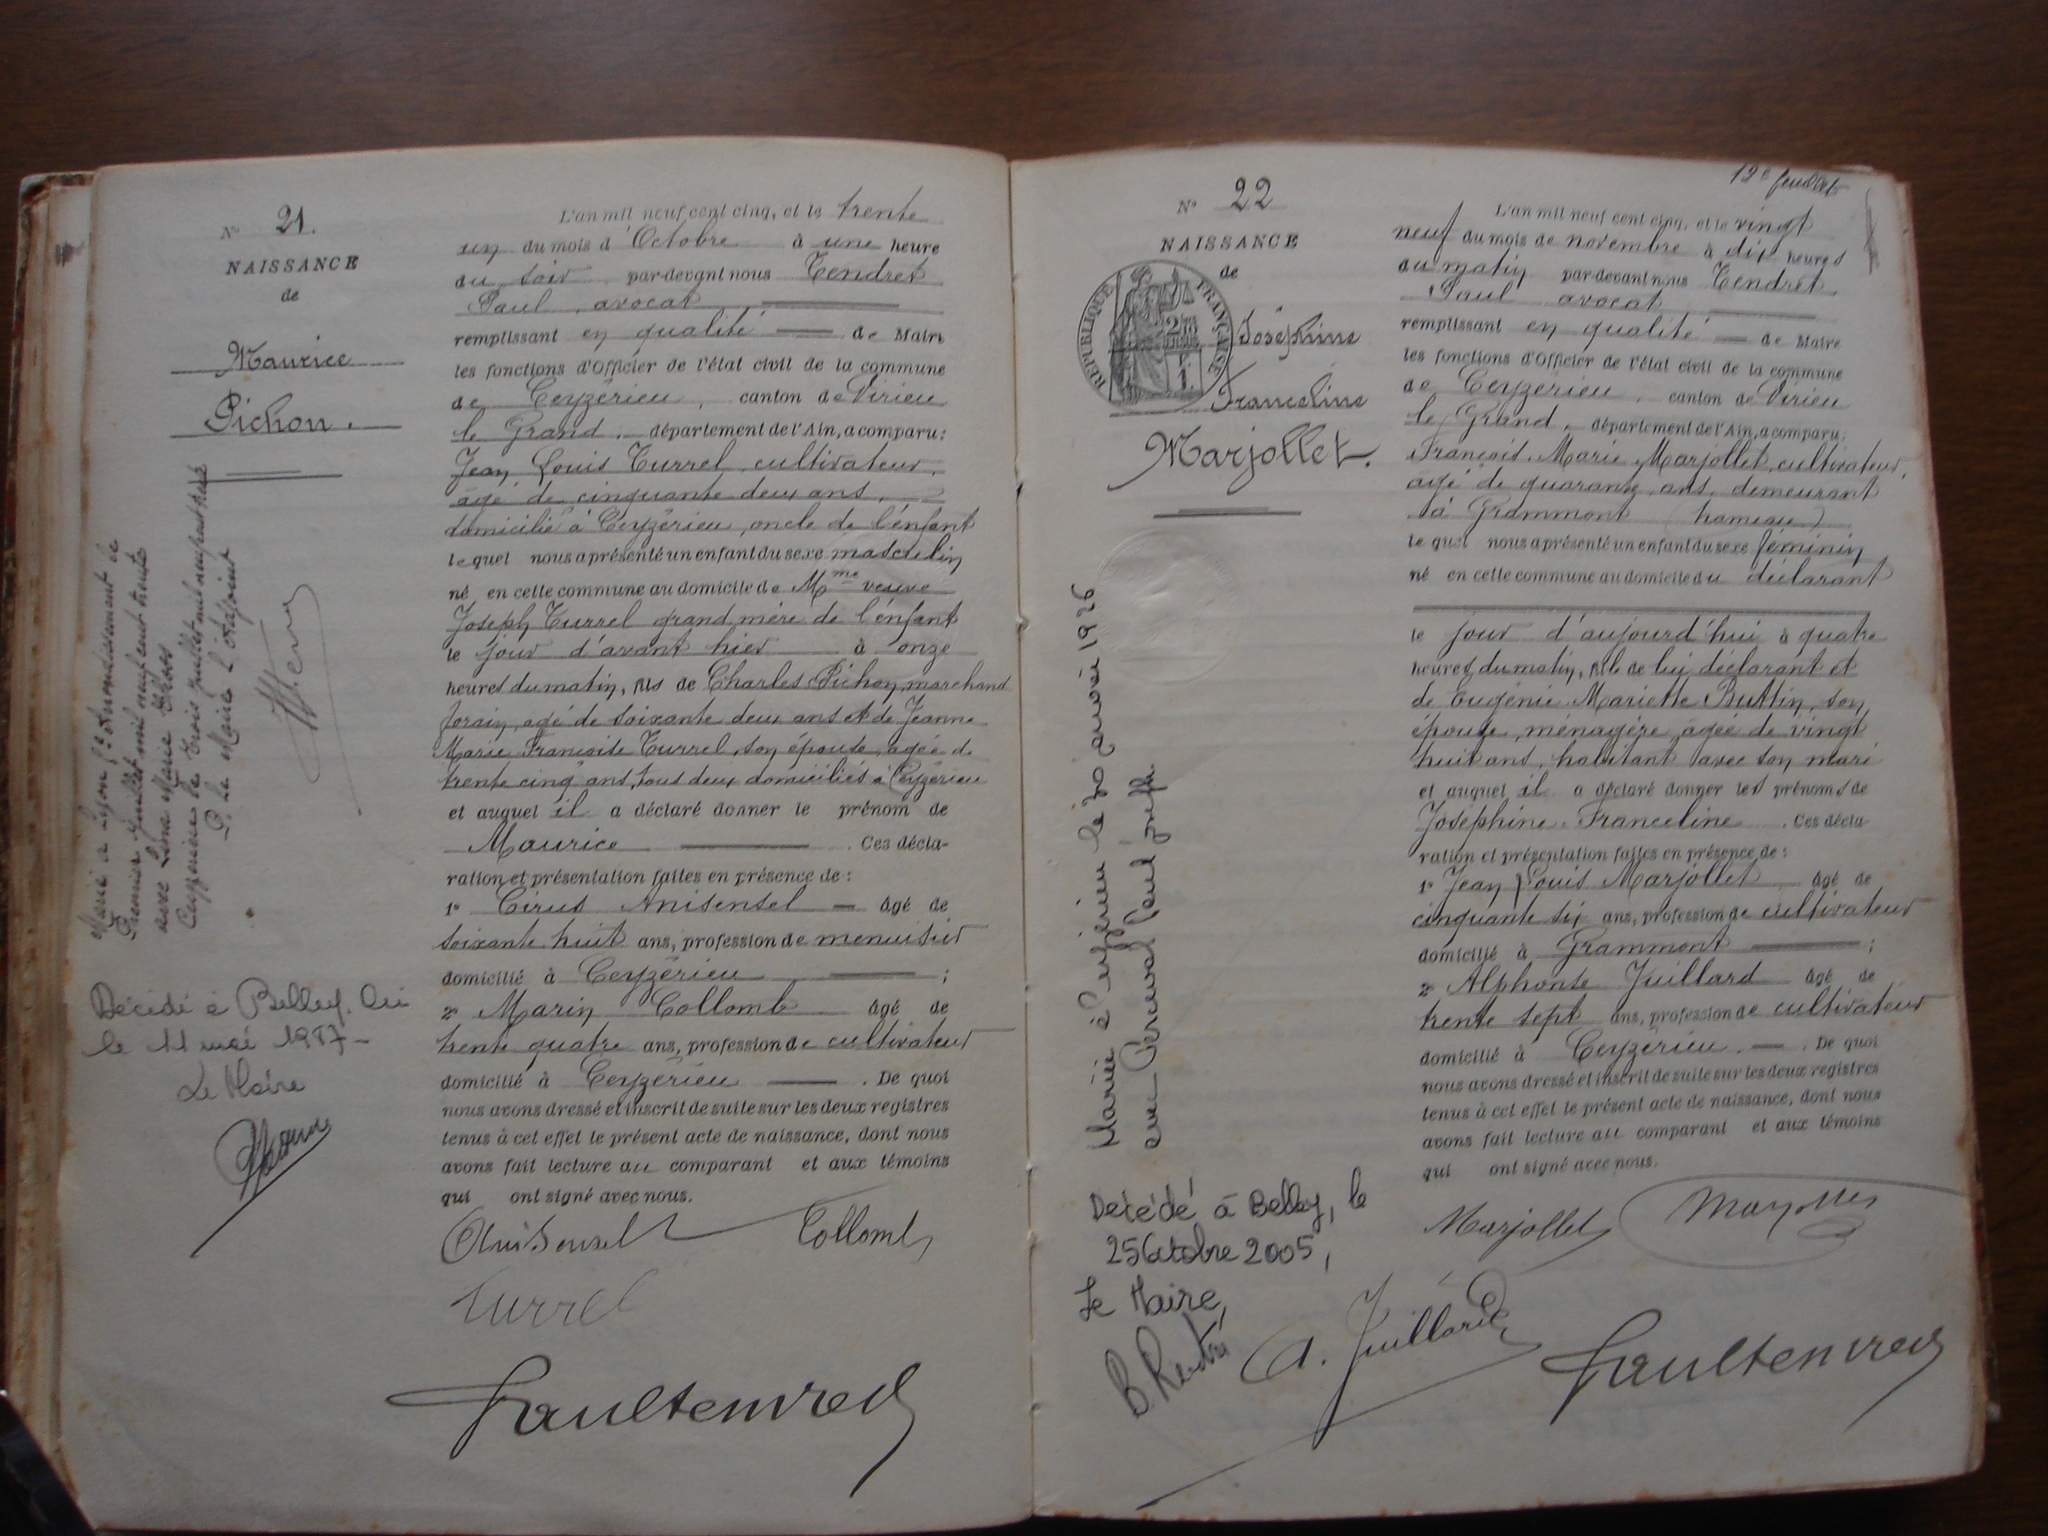 N° 21.
NAISSANCE
de
Maurice
Pichon.
Marié à Lyon 3e Arrondissement le
Premier Juillet mil neuf cent trente
avec Léna Marie
Ceyzérieu le trois juillet mil neuf cent trente
P. le Maire l'Adjoint
Décédé à Belley. Ain
le 11 mai 1987-
Le Maire
L'an mil neuf cent cinq, et le trente
un du mois d'Octobre à une heure
du soir par-devant nous Tendret
Paul, avocat
remplissant en qualité de Maire
les fonctions d'Officier de l'état civil de la commune
de Ceyzérieu, canton de Virieu
le Grand, département de l'Ain, a comparu:
Jean Louis Turrel, cultivateur,
âgé de cinquante deux ans,
domicilié à Ceyzérieu, oncle de l'enfant
lequel nous a présenté un enfant du sexe masculin
né en cette commune au domicile de Mme veuve
Joseph Turrel grand mère de l'enfant
le jour d'avant hier à onze
heures du matin, fils de Charles Pichon, marchand
forain, âgé de soixante deux ans et de Jeanne
Marie Françoise Turrel, son épouse, âgée de
trente cinq ans, tous deux domiciliés à Ceyzérieu
et auquel il a déclaré donner le prénom de
Maurice . Ces décla-
ration et présentation faites en présence de:
1° Cirus Anisensel âgé de
soixante huit ans, profession de menuisier
domicilié à Ceyzérieu ;
2° Marin Collomb âgé de
trente quatre ans, profession de cultivateur
domicilié à Ceyzérieu . De quoi
nous avons dressé et inscrit de suite sur les deux registres
tenus à cet effet le présent acte de naissance, dont nous
avons fait lecture au comparant et aux témoins
qui ont signé avec nous.
Anisensel Collomb
Turrel
12e feuillet
N° 22
NAISSANCE
de
RÉPUBLIQUE FRANÇAISE
Joséphine
Franceline
Marjollet.
Mariée à Ceyzérieu le 30 janvier 1926
avec Perceval Paul Joseph
Décédé à Belley, le
25 Octobre 2005,
Le Maire,
L'an mil neuf cent cinq, et le vingt
neuf du mois de novembre à dix heures
du matin par-devant nous Tendret
Paul avocat
remplissant en qualité de Maire
les fonctions d'Officier de l'état civil de la commune
de Ceyzérieu, canton de Virieu
le Grand, département de l'Ain, a comparu:
François Marie Marjollet, cultivateur,
âgé de quarante ans, demeurant
à Grammont (hameau)
lequel nous a présenté un enfant du sexe féminin
né en cette commune au domicile du déclarant
le jour d'aujourd'hui à quatre
heures du matin, fille de lui déclarant et
de Eugénie Mariette Buttin, son
épouse, ménagère, âgée de vingt
huit ans, habitant avec son mari
et auquel il a déclaré donner les prénoms de
Joséphine Franceline . Ces décla-
ration et présentation faites en présence de:
1° Jean Louis Marjollet âgé de
cinquante six ans, profession de cultivateur
domicilié à Grammont ;
2° Alphonse Juillard âgé de
trente sept ans, profession de cultivateur
domicilié à Ceyzérieu. . De quoi
nous avons dressé et inscrit de suite sur les deux registres
tenus à cet effet le présent acte de naissance, dont nous
avons fait lecture au comparant et aux témoins
qui ont signé avec nous.
Marjollet
A. Juillard